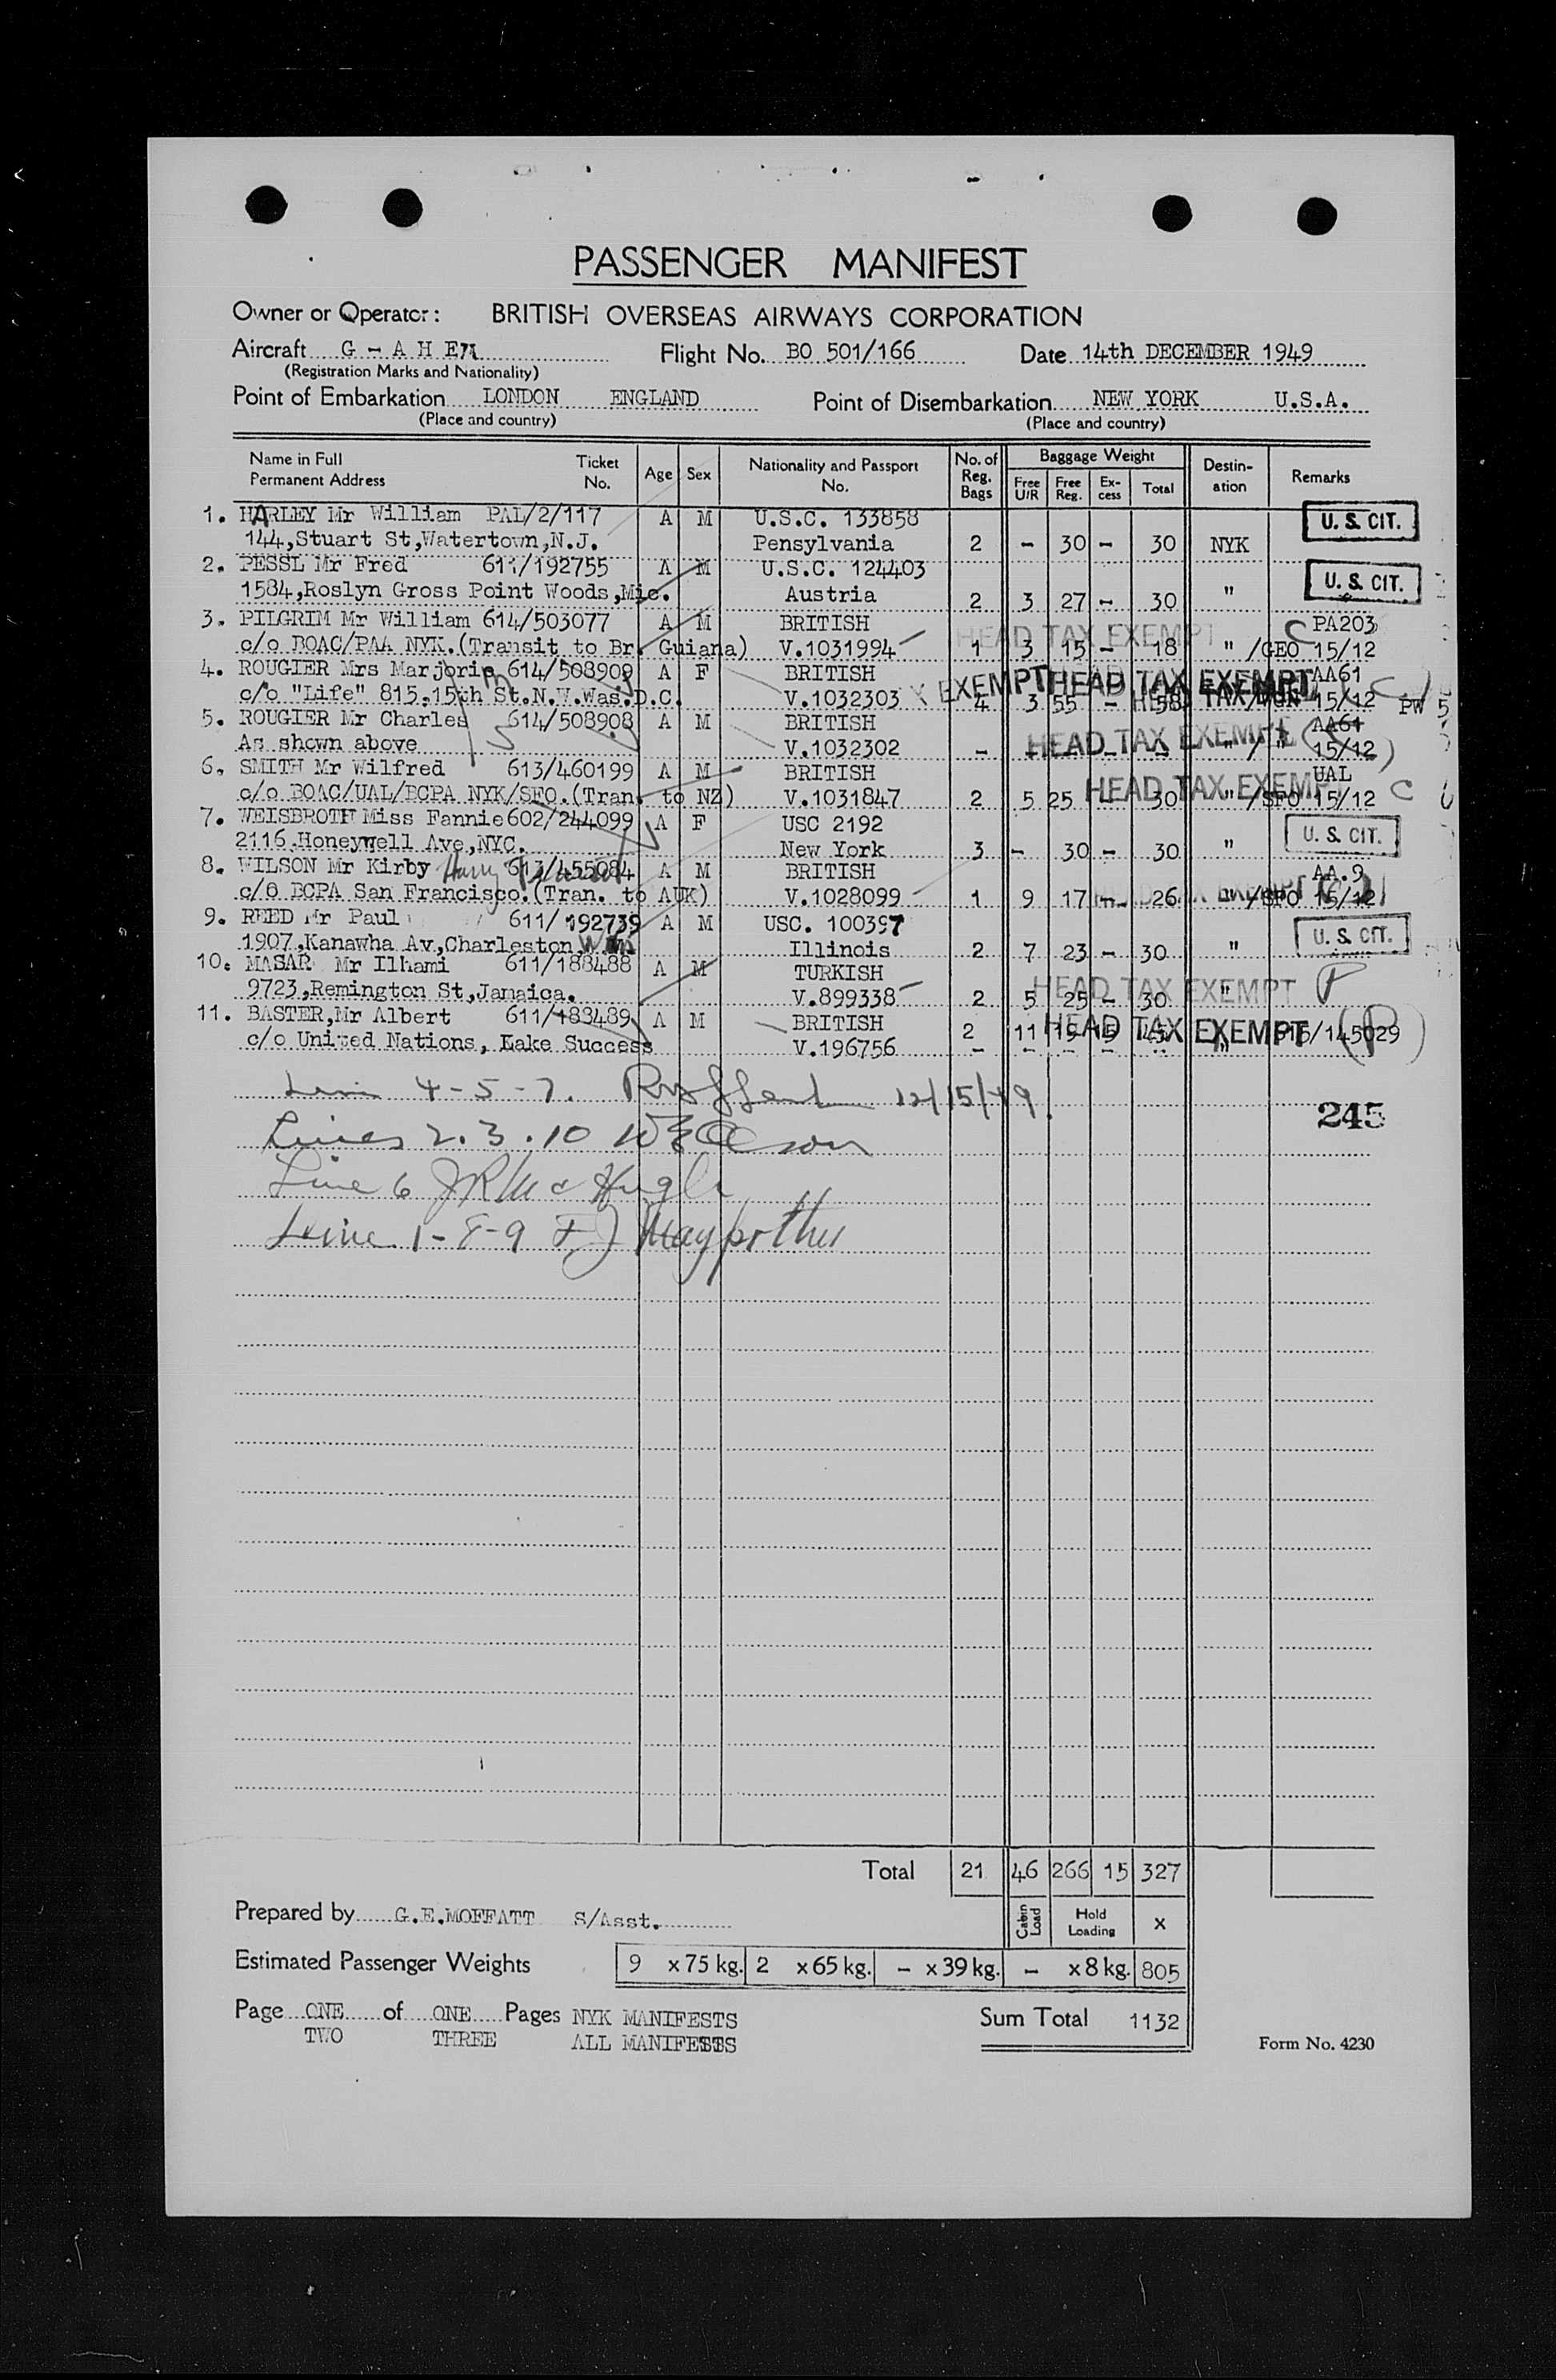 PASSENGER MANIFEST
Owner or Operator: BRITISH OVERSEAS AIRWAYS CORPORATION
Aircraft G - A H E M Flight No. BO 501/166 Date 14th DECEMBER 1949
(Registration Marks and Nationality)
Point of Embarkation LONDON ENGLAND Point of Disembarkation NEW YORK U.S.A.
(Place and country) (Place and country)
Name in Full Permanent Address Ticket No. Age Sex Nationality and Passport No. No. of Reg. Bags Baggage Weight Free U/R Free Reg. Ex-cess Total Destin-ation Remarks
1. HARLEY Mr William PAL/2/117 A M U.S.C. 133858 U. S. CIT.
144,Stuart St,Watertown,N.J. Pensylvania 2 - 30 - 30 NYK
2. PESSL Mr Fred 611/192755 A M U.S.C. 124403 U. S. CIT.
1584,Roslyn Gross Point Woods,Mic. Austria 2 3 27 - 30 "
3. PILGRIM Mr William 614/503077 A M BRITISH HEAD TAX EXEMPT C PA203
c/o BOAC/PAA NYK.(Transit to Br. Guiana) V.1031994 1 3 15 - 18 " /GEO 15/12
4. ROUGIER Mrs Marjorie 614/508909 A F BRITISH EXEMPT HEAD TAX EXEMPT AA61
c/o "Life" 815.15th St.N.W.Was.D.C. V.1032303 4 3 55 - 58 15/12 C PW
5. ROUGIER Mr Charles 614/508908 A M BRITISH HEAD TAX EXEMPT AA61
As shown above V.1032302 - - - - - " / " 15/12
6. SMITH Mr Wilfred 613/460199 A M BRITISH HEAD TAX EXEMPT UAL
c/o BOAC/UAL/BCPA NYK/SFO.(Tran. to NZ) V.1031847 2 5 25 - 30 " /SFO 15/12 C
7. WEISBROTH Miss Fannie 602/244099 A F USC 2192 U. S. CIT.
2116.Honeywell Ave,NYC. New York 3 - 30 - 30 "
8. WILSON Mr Kirby Harry 613/455084 A M BRITISH AA.9
c/o BCPA San Francisco.(Tran. to AUK) V.1028099 1 9 17 - 26 " /SFO 15/12
9. REED Mr Paul 611/192739 A M USC. 100397 U. S. CIT.
1907,Kanawha Av,Charleston Illinois 2 7 23 - 30 "
10. MASAR Mr Ilhami 611/188488 A M TURKISH HEAD TAX EXEMPT P
9723,Remington St,Jamaica. V.899338 2 5 25 - 30 "
11. BASTER,Mr Albert 611/188489 A M BRITISH 2 11 19 15 45 HEAD TAX EXEMPT /145029 (P)
c/o United Nations, Lake Success V.196756 - - - - -
4-5-7. 12/15/49.
245
Lines 2.3.10
Line 6 J R McHugh
Line 1-8-9 F J
Total 21 46 266 15 327
Prepared by G.E.MOFFATT S/Asst. Cabin Load Hold Loading x
Estimated Passenger Weights 9 x 75 kg. 2 x 65 kg. - x 39 kg. - x 8 kg. 805
Page ONE of ONE Pages NYK MANIFESTS Sum Total 1132
TWO THREE ALL MANIFESTS Form No. 4230